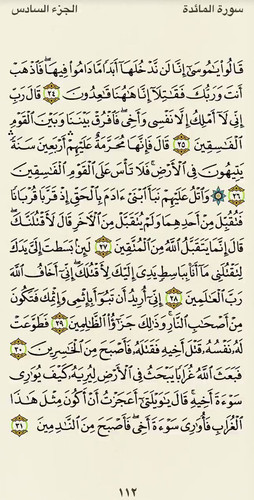 سورة المائدة الجزء السادس
قَالُوا۟ يَٰمُوسَىٰٓ إِنَّا لَن نَّدْخُلَهَآ أَبَدًا مَّا دَامُوا۟ فِيهَا ۖ فَٱذْهَبْ
أَنتَ وَرَبُّكَ فَقَٰتِلَآ إِنَّا هَٰهُنَا قَٰعِدُونَ ٢٤ قَالَ رَبِّ
إِنِّى لَآ أَمْلِكُ إِلَّا نَفْسِى وَأَخِى ۖ فَٱفْرُقْ بَيْنَنَا وَبَيْنَ ٱلْقَوْمِ
ٱلْفَٰسِقِينَ ٢٥ قَالَ فَإِنَّهَا مُحَرَّمَةٌ عَلَيْهِمْ ۛ أَرْبَعِينَ سَنَةً ۛ
يَتِيهُونَ فِى ٱلْأَرْضِ ۚ فَلَا تَأْسَ عَلَى ٱلْقَوْمِ ٱلْفَٰسِقِينَ
٢٦ ۞ وَٱتْلُ عَلَيْهِمْ نَبَأَ ٱبْنَىْ ءَادَمَ بِٱلْحَقِّ إِذْ قَرَّبَا قُرْبَانًا
فَتُقُبِّلَ مِنْ أَحَدِهِمَا وَلَمْ يُتَقَبَّلْ مِنَ ٱلْءَاخَرِ قَالَ لَأَقْتُلَنَّكَ ۖ
قَالَ إِنَّمَا يَتَقَبَّلُ ٱللَّهُ مِنَ ٱلْمُتَّقِينَ ٢٧ لَئِنۢ بَسَطتَ إِلَىَّ يَدَكَ
لِتَقْتُلَنِى مَآ أَنَا۠ بِبَاسِطٍ يَدِىَ إِلَيْكَ لِأَقْتُلَكَ ۖ إِنِّىٓ أَخَافُ ٱللَّهَ
رَبَّ ٱلْعَٰلَمِينَ ٢٨ إِنِّىٓ أُرِيدُ أَن تَبُوٓأَ بِإِثْمِى وَإِثْمِكَ فَتَكُونَ
مِنْ أَصْحَٰبِ ٱلنَّارِ ۚ وَذَٰلِكَ جَزَٰٓؤُا۟ ٱلظَّٰلِمِينَ ٢٩ فَطَوَّعَتْ
لَهُۥ نَفْسُهُۥ قَتْلَ أَخِيهِ فَقَتَلَهُۥ فَأَصْبَحَ مِنَ ٱلْخَٰسِرِينَ ٣٠
فَبَعَثَ ٱللَّهُ غُرَابًا يَبْحَثُ فِى ٱلْأَرْضِ لِيُرِيَهُۥ كَيْفَ يُوَٰرِى
سَوْءَةَ أَخِيهِ ۚ قَالَ يَٰوَيْلَتَىٰٓ أَعَجَزْتُ أَنْ أَكُونَ مِثْلَ هَٰذَا
ٱلْغُرَابِ فَأُوَٰرِىَ سَوْءَةَ أَخِى ۖ فَأَصْبَحَ مِنَ ٱلنَّٰدِمِينَ ٣١
١١٢